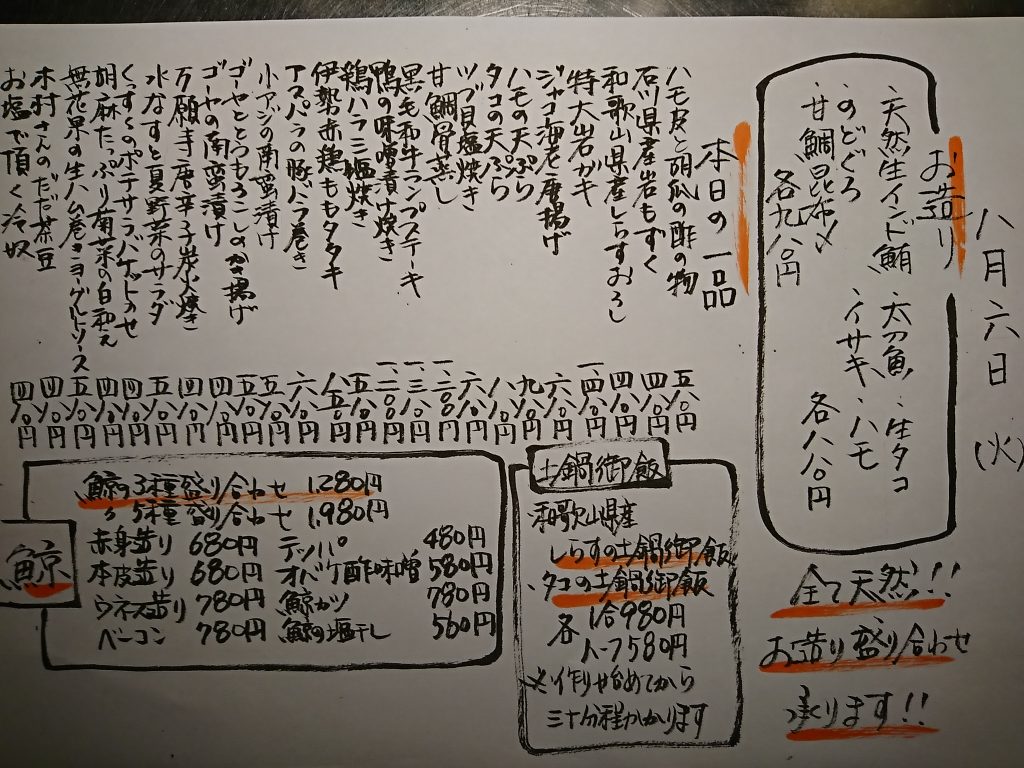 八月六日(火)
お造り
・天然生インド鮪 ・太刀魚 ・生タコ
・のどぐろ ・イサキ ・ハモ
・甘鯛昆布〆 各八八〇円
各九八〇円
全て天然!!
お造り盛り合わせ
承ります!!
本日の一品
ハモ皮と胡瓜の酢の物 五八〇円
石川県産岩もずく 四八〇円
和歌山県産しらすおろし 四八〇円
特大岩ガキ 一、四八〇円
ジャコ海老唐揚げ 六八〇円
ハモの天ぷら 九八〇円
タコの天ぷら 八八〇円
ツブ貝塩焼き 六八〇円
甘鯛骨蒸し 一、二〇〇円
黒毛和牛ランプステーキ 一、三八〇円
鴨の味噌漬け焼き 一、二〇〇円
鶏ハラミ塩焼き 五八〇円
伊勢赤鶏ももタタキ 八五〇円
アスパラの豚バラ巻き 六八〇円
小アジの南蛮漬け 五八〇円
ゴーヤととうもろこしのかき揚げ 五八〇円
ゴーヤの南蛮漬け 四八〇円
万願寺唐辛子炭火焼き 四八〇円
水なすと夏野菜のサラダ 五八〇円
くっすくのポテサラバケットのせ 四八〇円
胡麻たっぷり青菜の白和え 四八〇円
無花果の生ハム巻きヨーグルトソース 五八〇円
木村さんのだだ茶豆 四八〇円
お塩で頂く冷奴 四八〇円
土鍋御飯
・和歌山県産
しらすの土鍋御飯
・タコの土鍋御飯
各 1合980円
ハーフ580円
※作り始めてから
三十分程かかります
鯨
鯨の3種盛り合わせ 1,280円
〃 5種盛り合わせ 1,980円
赤身造り 680円 テッパ 480円
本皮造り 680円 オバケ酢味噌 580円
ウネス造り 780円 鯨カツ 780円
ベーコン 780円 鯨の塩干し 560円